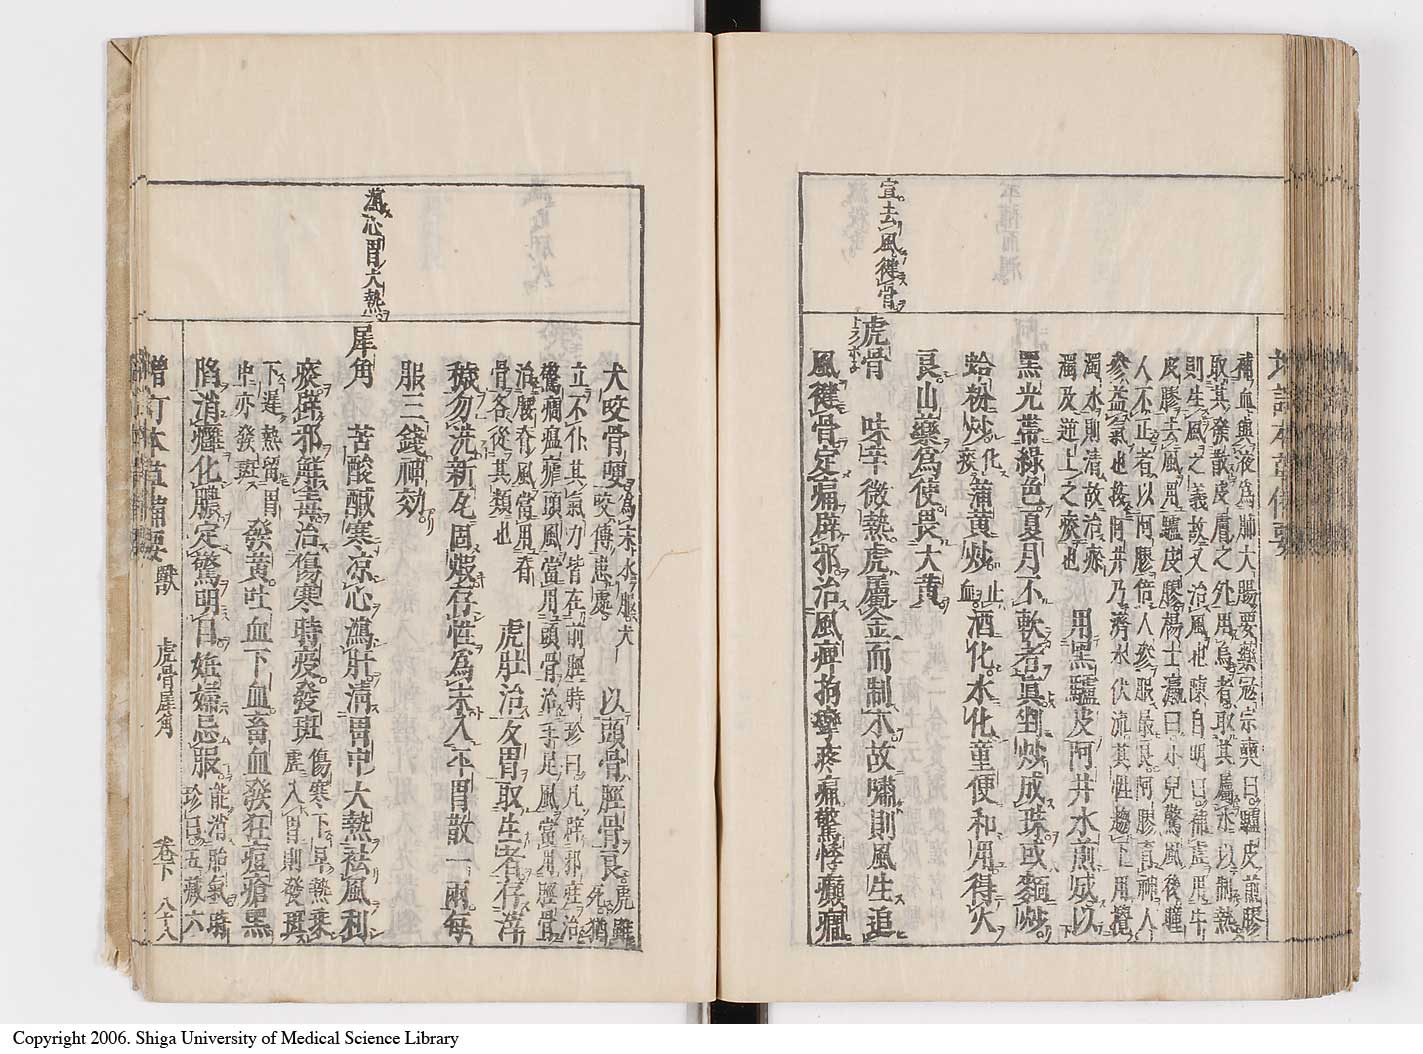 宣去風徤骨
補血與液為肺大腸要藥冦宗奭曰驢皮煎膠
取其發散皮膚之外用烏者取其屬水以制熱
則生風之義故又治風也陳自明曰補虛用牛
皮膠去風用驢皮膠楊士瀛曰小兒驚風後瞳
人不正者以阿膠倍人參服最良阿膠育神人
參益氣也按阿井乃濟水伏流其性趨下用攪
濁水則清故治瘀
濁及逆上之痰也
用黑驢皮阿井水煎成以
黑光帶綠色夏月不軟者真剉炒成珠或麵炒
蛤粉炒化痰蒲黄炒止血酒化水化童便和用得火
良山藥為使畏大黄
虎骨
味辛微熱虎屬金而制木故嘯則風生追
風徤骨定痛辟邪治風痺拘攣疼痛驚悸癲癇
犬咬骨哽為末水服犬咬傅患處以頭骨脛骨良虎雖死猶
立不仆其氣力皆在前脛時珍曰凡辟邪疰治
驚癇瘟瘧頭風當用頭骨治手足風當用脛骨
治腰脊風當用脊
骨各從其類也
虎肚治反胃取生者存滓
穢勿洗新瓦固煅存性為末入平胃散一兩每
服三錢神効
瀉心胃大熱
犀角
苦酸鹹寒凉心瀉肝清胃中大熱祛風利
痰辟邪解毒治傷寒時疫發斑傷寒下早熱乘虛入胃則發斑
下遲熱留胃
中亦發斑
發黄吐血下血畜血發狂痘瘡黑
陷消癰化膿定驚明目妊婦忌服能消胎氣時珍曰五藏六
增訂本草備要
獸
虎骨犀角
卷下
八十八